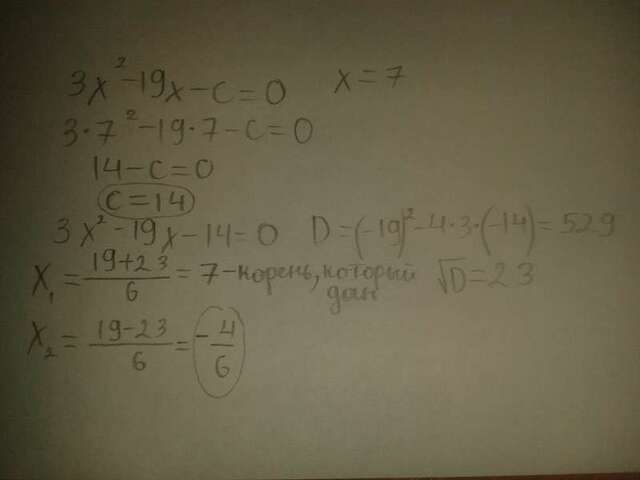 3x²-19x-c=0 x=7
3·7²-19·7-c=0
14-c=0
c=14
3x²-19x-14=0 D=(-19)²-4·3·(-14)=529
x₁=19+23/6=7-корень, который дан √D=23
x₂=19-23/6=-4/6